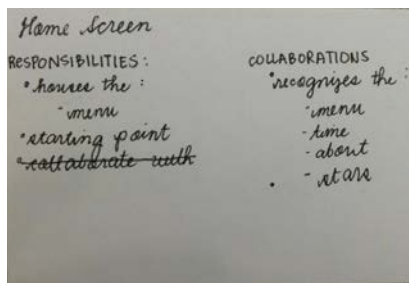 Home Screen
RESPONSIBILITIES:
• houses the :
- menu
• starting point
• collaborate with
COLLABORATIONS
• recognizes the :
- menu
- time
- about
- stars